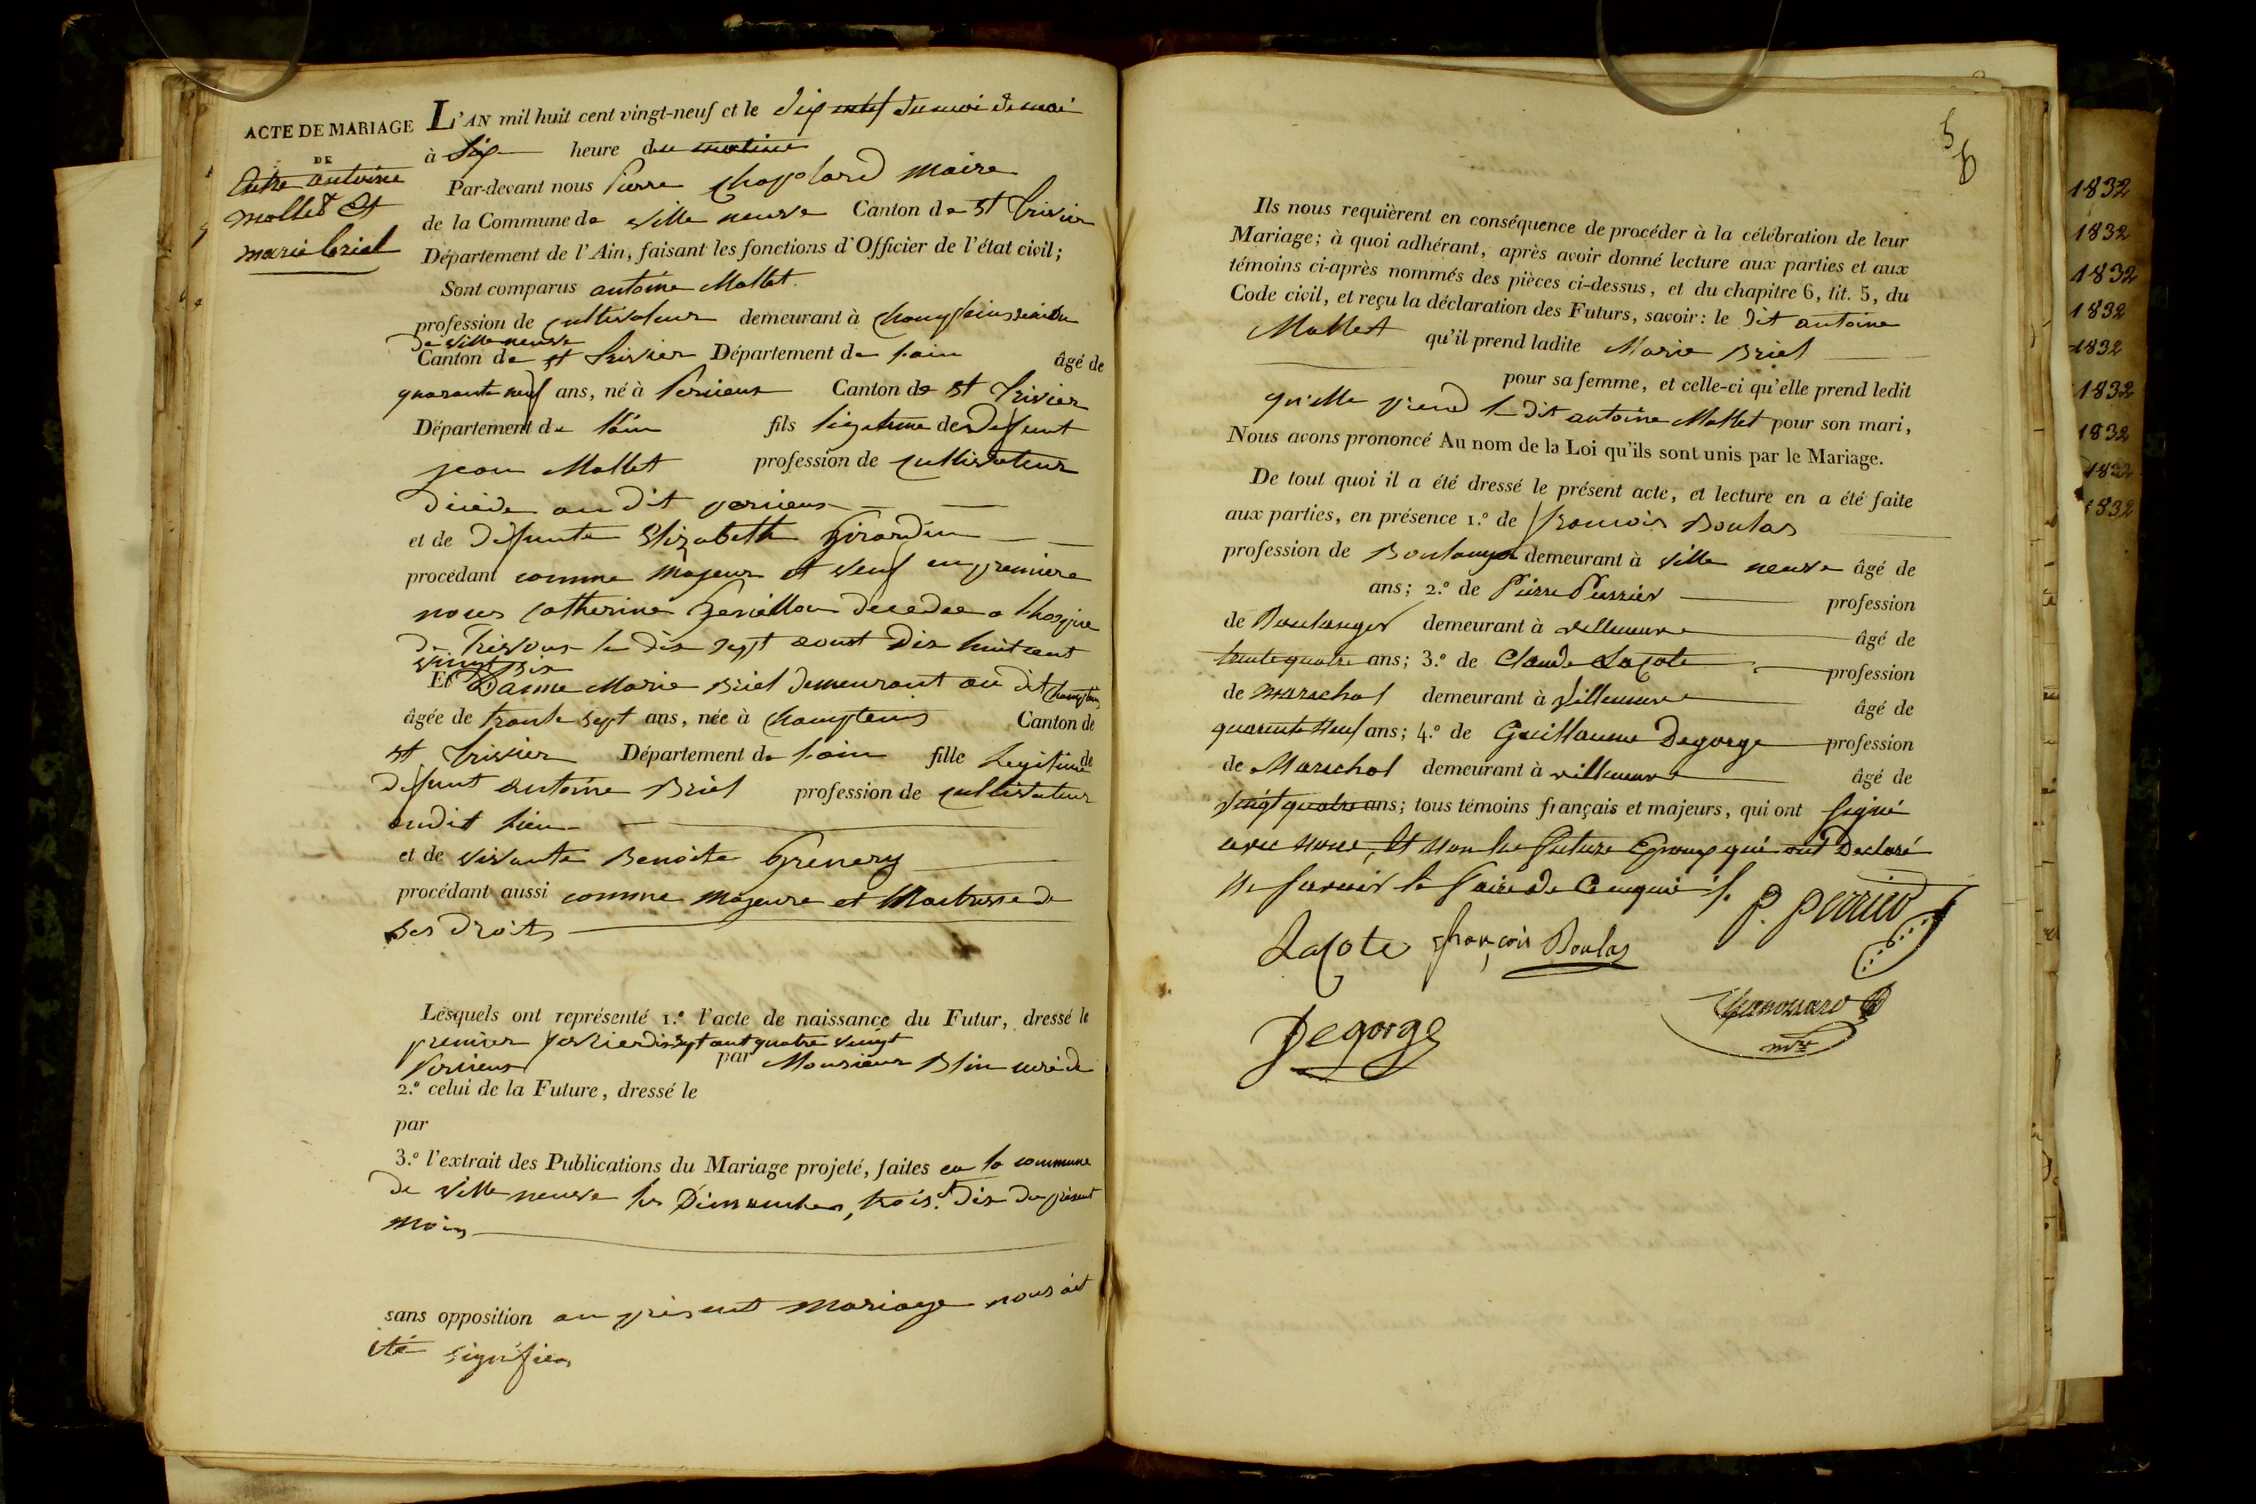 ACTE DE MARIAGE
DE
Entre antoine
mollet Et
marie briel
L'AN mil huit cent vingt-neuf et le dix neuf du moi de mai
à Six heure du matin
Par-devant nous Pierre Chapolard Maire
de la Commune de ville neuve Canton de St Trivier
Département de l'Ain, faisant les fonctions d'Officier de l'état civil;
Sont comparus antoine Mollet
profession de cultivateur demeurant à
de ville neuve
Canton de St Trivier Département de l'ain âgé de
quarante neuf ans, né à Percieux Canton de St Trivier
Département de l'ain fils légitime de Defunt
jean Mollet profession de cultivateur
décédé au dit percieux
et de défunte Elizabeth Girardin
procédant comme Majeur et veuf en première
noces Catherine décédée a
de Trevoux le dix sept aoust dix huit cent
vingt six
Et Danne Marie Briel demeurant au dit
âgée de trente sept ans, née à champtein Canton de
St Trivier Département de l'ain fille Legitime de
défunt antoine Briel profession de cultivateur
audit lieu
et de vivante Benoite Grenery
procédant aussi comme majeure et Maitresse de
ses droits
Lesquels ont représenté 1.º l'acte de naissance du Futur, dressé le
premier fevrier dix sept cent quatre vingt
Percieux par Monsieur Blin curé de
2.º celui de la Future, dressé le
par
3.º l'extrait des Publications du Mariage projeté, faites en la commune
de ville neuve les Dimanches, trois et dix du présent
mois
sans opposition au présent mariage nous ait
été signifiés
5
6
Ils nous requièrent en conséquence de procéder à la célébration de leur
Mariage; à quoi adhérant, après avoir donné lecture aux parties et aux
témoins ci-après nommés des pièces ci-dessus, et du chapitre 6, tit. 5, du
Code civil, et reçu la déclaration des Futurs, savoir: le Dit antoine
Mollet qu'il prend ladite Marie Briel
pour sa femme, et celle-ci qu'elle prend ledit
qu'elle prend le dit antoine Mollet pour son mari,
Nous avons prononcé Au nom de la Loi qu'ils sont unis par le Mariage.
De tout quoi il a été dressé le présent acte, et lecture en a été faite
aux parties, en présence 1.º de francois Boulas
profession de Boulanger demeurant à ville neuve âgé de
ans; 2.º de Pierre Perrier profession
de Boulanger demeurant à villeneuve âgé de
trente quatre ans; 3.º de Claude Lacote profession
de marechal demeurant à villeneuve âgé de
quarante neuf ans; 4.º de Guillaume Degorge profession
de Marechal demeurant à villeneuve âgé de
vingt quatre ans; tous témoins français et majeurs, qui ont signé
avec nous, Et non les future Epoux qui ont Declaré
ne savoir le faire de ce enquis.
P. perrier
Lacote françois Boulas
Degorge
mre
1832
1832
1832
1832
1832
1832
1832
1832
1832